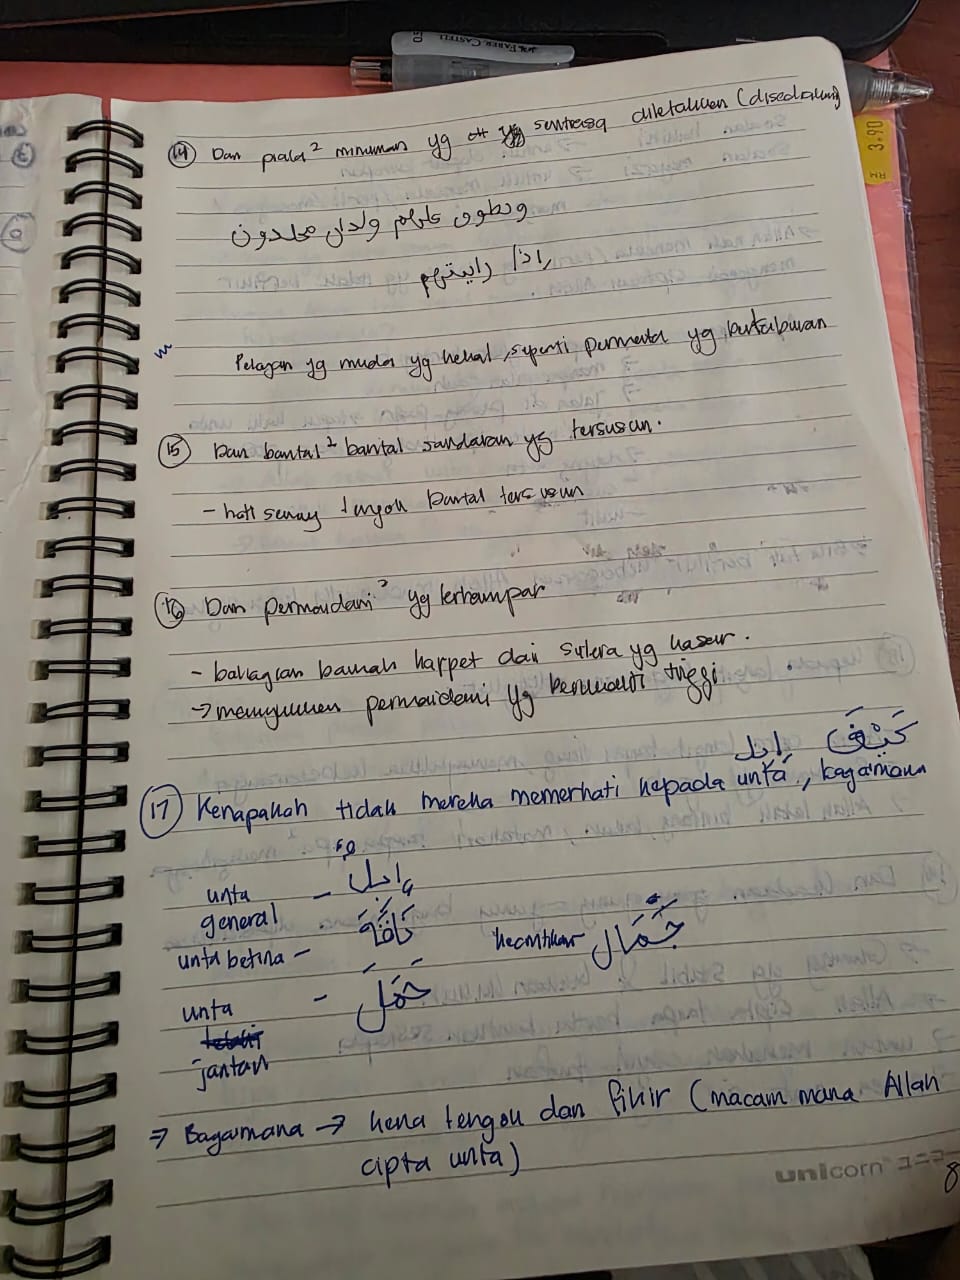 (14) Dan piala² minuman yg sentiasa diletakkan (disediakan)
ويطوف عليهم ولدان مخلدون
إذا رايتهم
Pelayan yg muda yg kekal, seperti permata yg bertaburan
(15) Dan bantal² bantal sandaran yg tersusun.
- hati senang tengok bantal tersusun
(16) Dan permaidani² yg terhampar
- bahagian bawah karpet dari sutera yg kasar.
→ menunjukkan permaidani yg berkualiti tinggi
إبل كَيْفَ
(17) Kenapakah tidak mereka memerhati kepada unta, bagaimana
unta general – إبل
unta betina – نَاقَة
kecantikan جَمَال
unta jantan – جَمَل
⇒ Bagaimana → kena tengok dan fikir (macam mana Allah
cipta unta)
unicorn
FABER CASTELL
RM 3.90
8